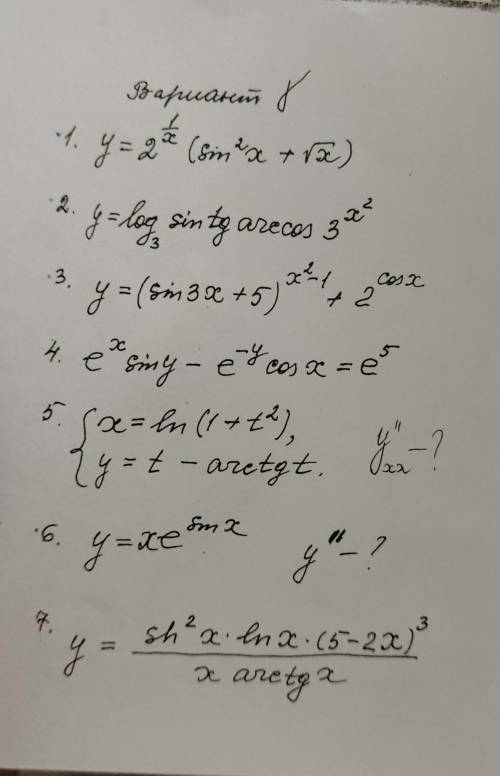 Вариант 8
1. y = 2^{1/x} (sin²x + √x)
2. y = log₃ sin tg arccos 3^{x²}
3. y = (sin3x + 5)^{x²-1} + 2^{cosx}
4. e^x sin y − e^{-y} cos x = e^5
5. { x = ln(1 + t²),
y = t − arctg t. y''_{xx} − ?
6. y = xe^{sin x} y'' − ?
7. y = \frac{sh²x · ln x · (5 − 2x)³}{x arctg x}